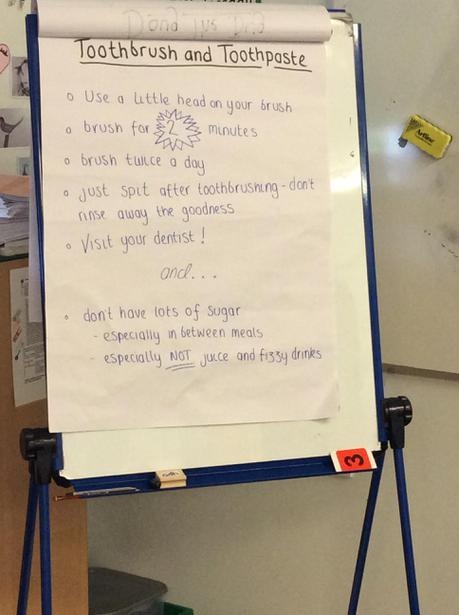 Toothbrush and Toothpaste
Use a little head on your brush
brush for 2 minutes
brush twice a day
just spit after toothbrushing - don't
rinse away the goodness
Visit your dentist!
and...
don't have lots of sugar
- especially in between meals
- especially NOT juice and fizzy drinks
3